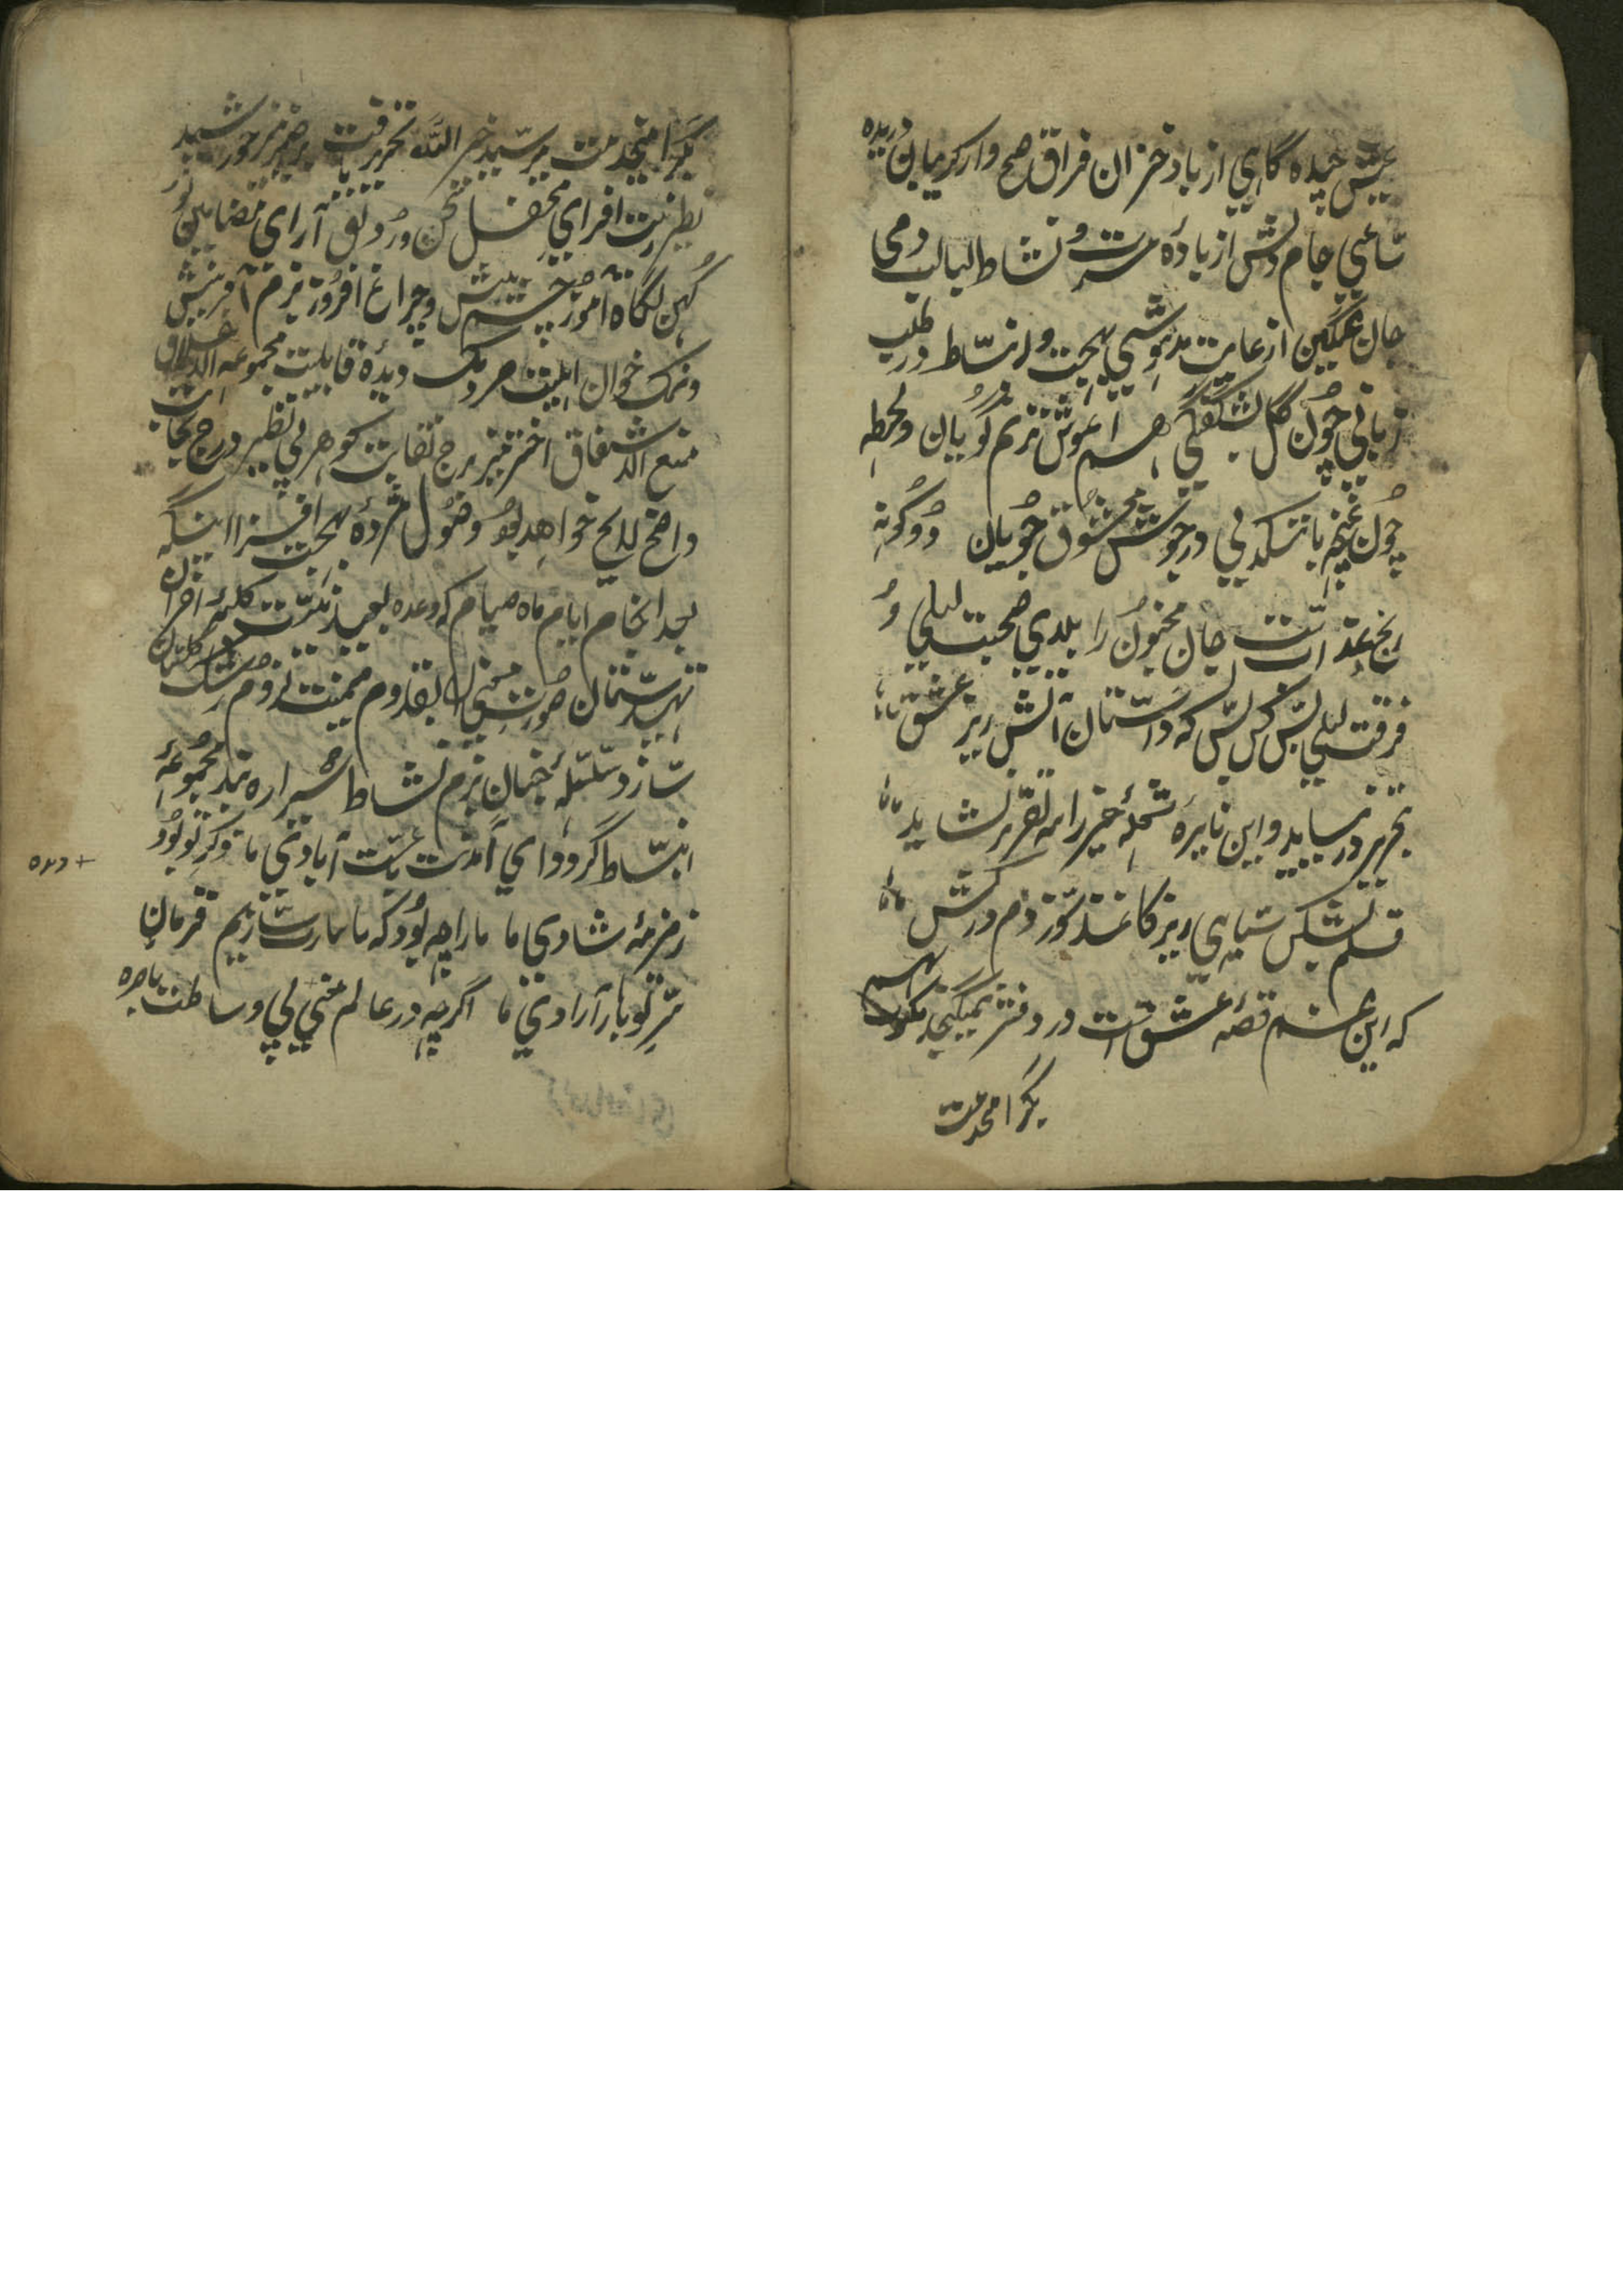 عیش چیده گاهی از باد خزان فراق صبح وار گریبان دریده
ساعتی جام دلش از بادهٔ مسرت و نشاط لبالب دمی
جان غمگین از غایت مدهوشی بهجت و انبساط در طلب
زمانی چون گل بشگفتگی هم آغوش ترنم گویان و لحظه
چون غنچه با تنگدلی در جوشش معشوق جویان دو گونه
رنج و عذابست جان مجنون را بلای صحبت لیلی و
فرقت لیلی بس کن بس که داستان آتش ریز عشق
بتحریر در نیاید و این نایرهٔ شعله خیز را به تقریر نشاید
قلم بشکن سیاهی ریز کاغذ سوز دم درکش
که این غم قصهٔ عشقست در دفتر نمیگنجد
بگرامخدمت
بگرامیخدمت میر سید خیر الله تحریر یافت بر ضمیر خورشید
نظیر زینت افزای محفل سخن و رونق آرای مضامین نو
و کهن نگاه آموز چشم بینش و چراغ افروز بزم آفرینش
و نمک خوان اهلیت مردمک دیدهٔ قابلیت مجموعه الاخلاق
منبع الاشفاق اختر منیر برج نقابت گوهر بی نظیر درج نجابت
واضح لایح خواهد بود وصول مژدهٔ بهجت افزا اینکه
بعد انجام ایام ماه صیام که وعده بعید نیست کلبهٔ احزان
تهیدستان صورت و معنی را بقدوم میمنت لزوم رشک گلستان
سازد سلسلهٔ جنبان بزم نشاط شیرازه بند مجموعهٔ
انبساط گردد ای آمدنت باعث آبادی ما ذکر تو بود
زمزمهٔ شادی ما ما را چه بود که ما نثارت سازیم فرمان
سر تو بار آزادی ما اگرچه در عالم معنی بی وساطت باصره